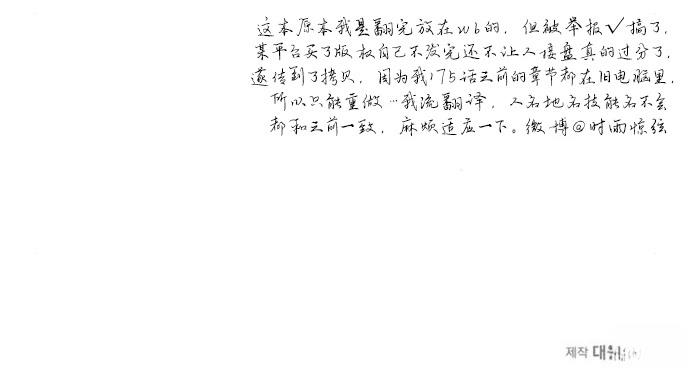 这本原本我是翻完放在wb的，但被举报✓搞了，
某平台买了版权自己不发完还不让人接盘真的过分了，
遂传到了拷贝，因为我175话之前的章节都在旧电脑里，
所以只能重做…我流翻译，人名地名技能名不会
都和之前一致，麻烦适应一下。微博@时雨惊弦
제작 대원